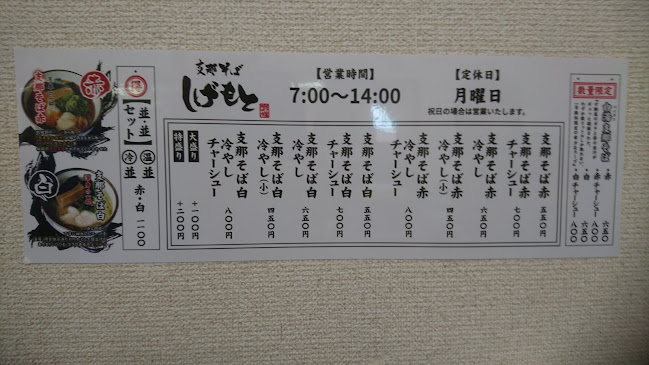 数量限定
台湾支那そば
・赤 六五〇
・赤 チャーシュー 八〇〇
・白 六五〇
・白 チャーシュー 八〇〇
支那そば
しげもと
【営業時間】
7:00〜14:00
【定休日】
月曜日
祝日の場合は営業いたします。
支那そば赤 五五〇円
支那そば赤 チャーシュー 七〇〇円
支那そば赤 冷やし 六五〇円
支那そば赤 冷やし(小) 四五〇円
支那そば赤 冷やし チャーシュー 八〇〇円
支那そば白 五五〇円
支那そば白 チャーシュー 七〇〇円
支那そば白 冷やし 六五〇円
支那そば白 冷やし(小) 四五〇円
支那そば白 冷やし チャーシュー 八〇〇円
大盛り +一〇〇円
特盛り +二〇〇円
【並・並セット】
温並
冷並
赤・白
赤
支那そば赤
白
支那そば白